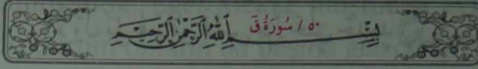 ٥٠ / سُورَةُ قٓ
بِسْمِ ٱللَّهِ ٱلرَّحْمَٰنِ ٱلرَّحِيمِ